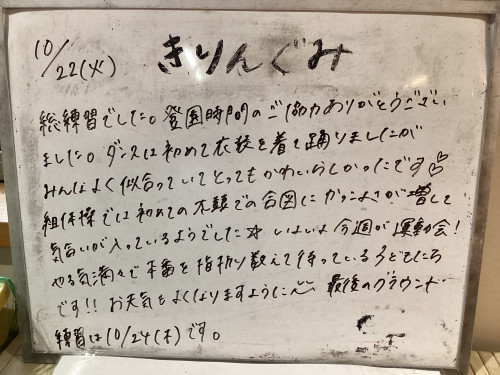 10/22(火)
きりんぐみ
総練習でした。登園時間のご協力ありがとうござい
ました。ダンスは初めて衣装を着て踊りましたが
みんなよく似合っていてとってもかわいらしかったです♡
組体操では初めての太鼓での合図にかっこよさが増して
気合いが入っているようでした☆ いよいよ今週が運動会!
やる気満々で本番を指折り数えて待っている子どもたち
です!! お天気もよくなりますように 最後のグラウンド
練習は10/24(木)です。